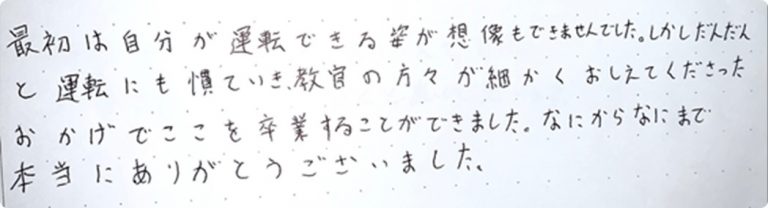 最初は自分が運転できる姿が想像もできませんでした。しかしだんだん
と運転にも慣ていき、教官の方々が細かくおしえてくださった
おかげでここを卒業することができました。なにからなにまで
本当にありがとうございました。